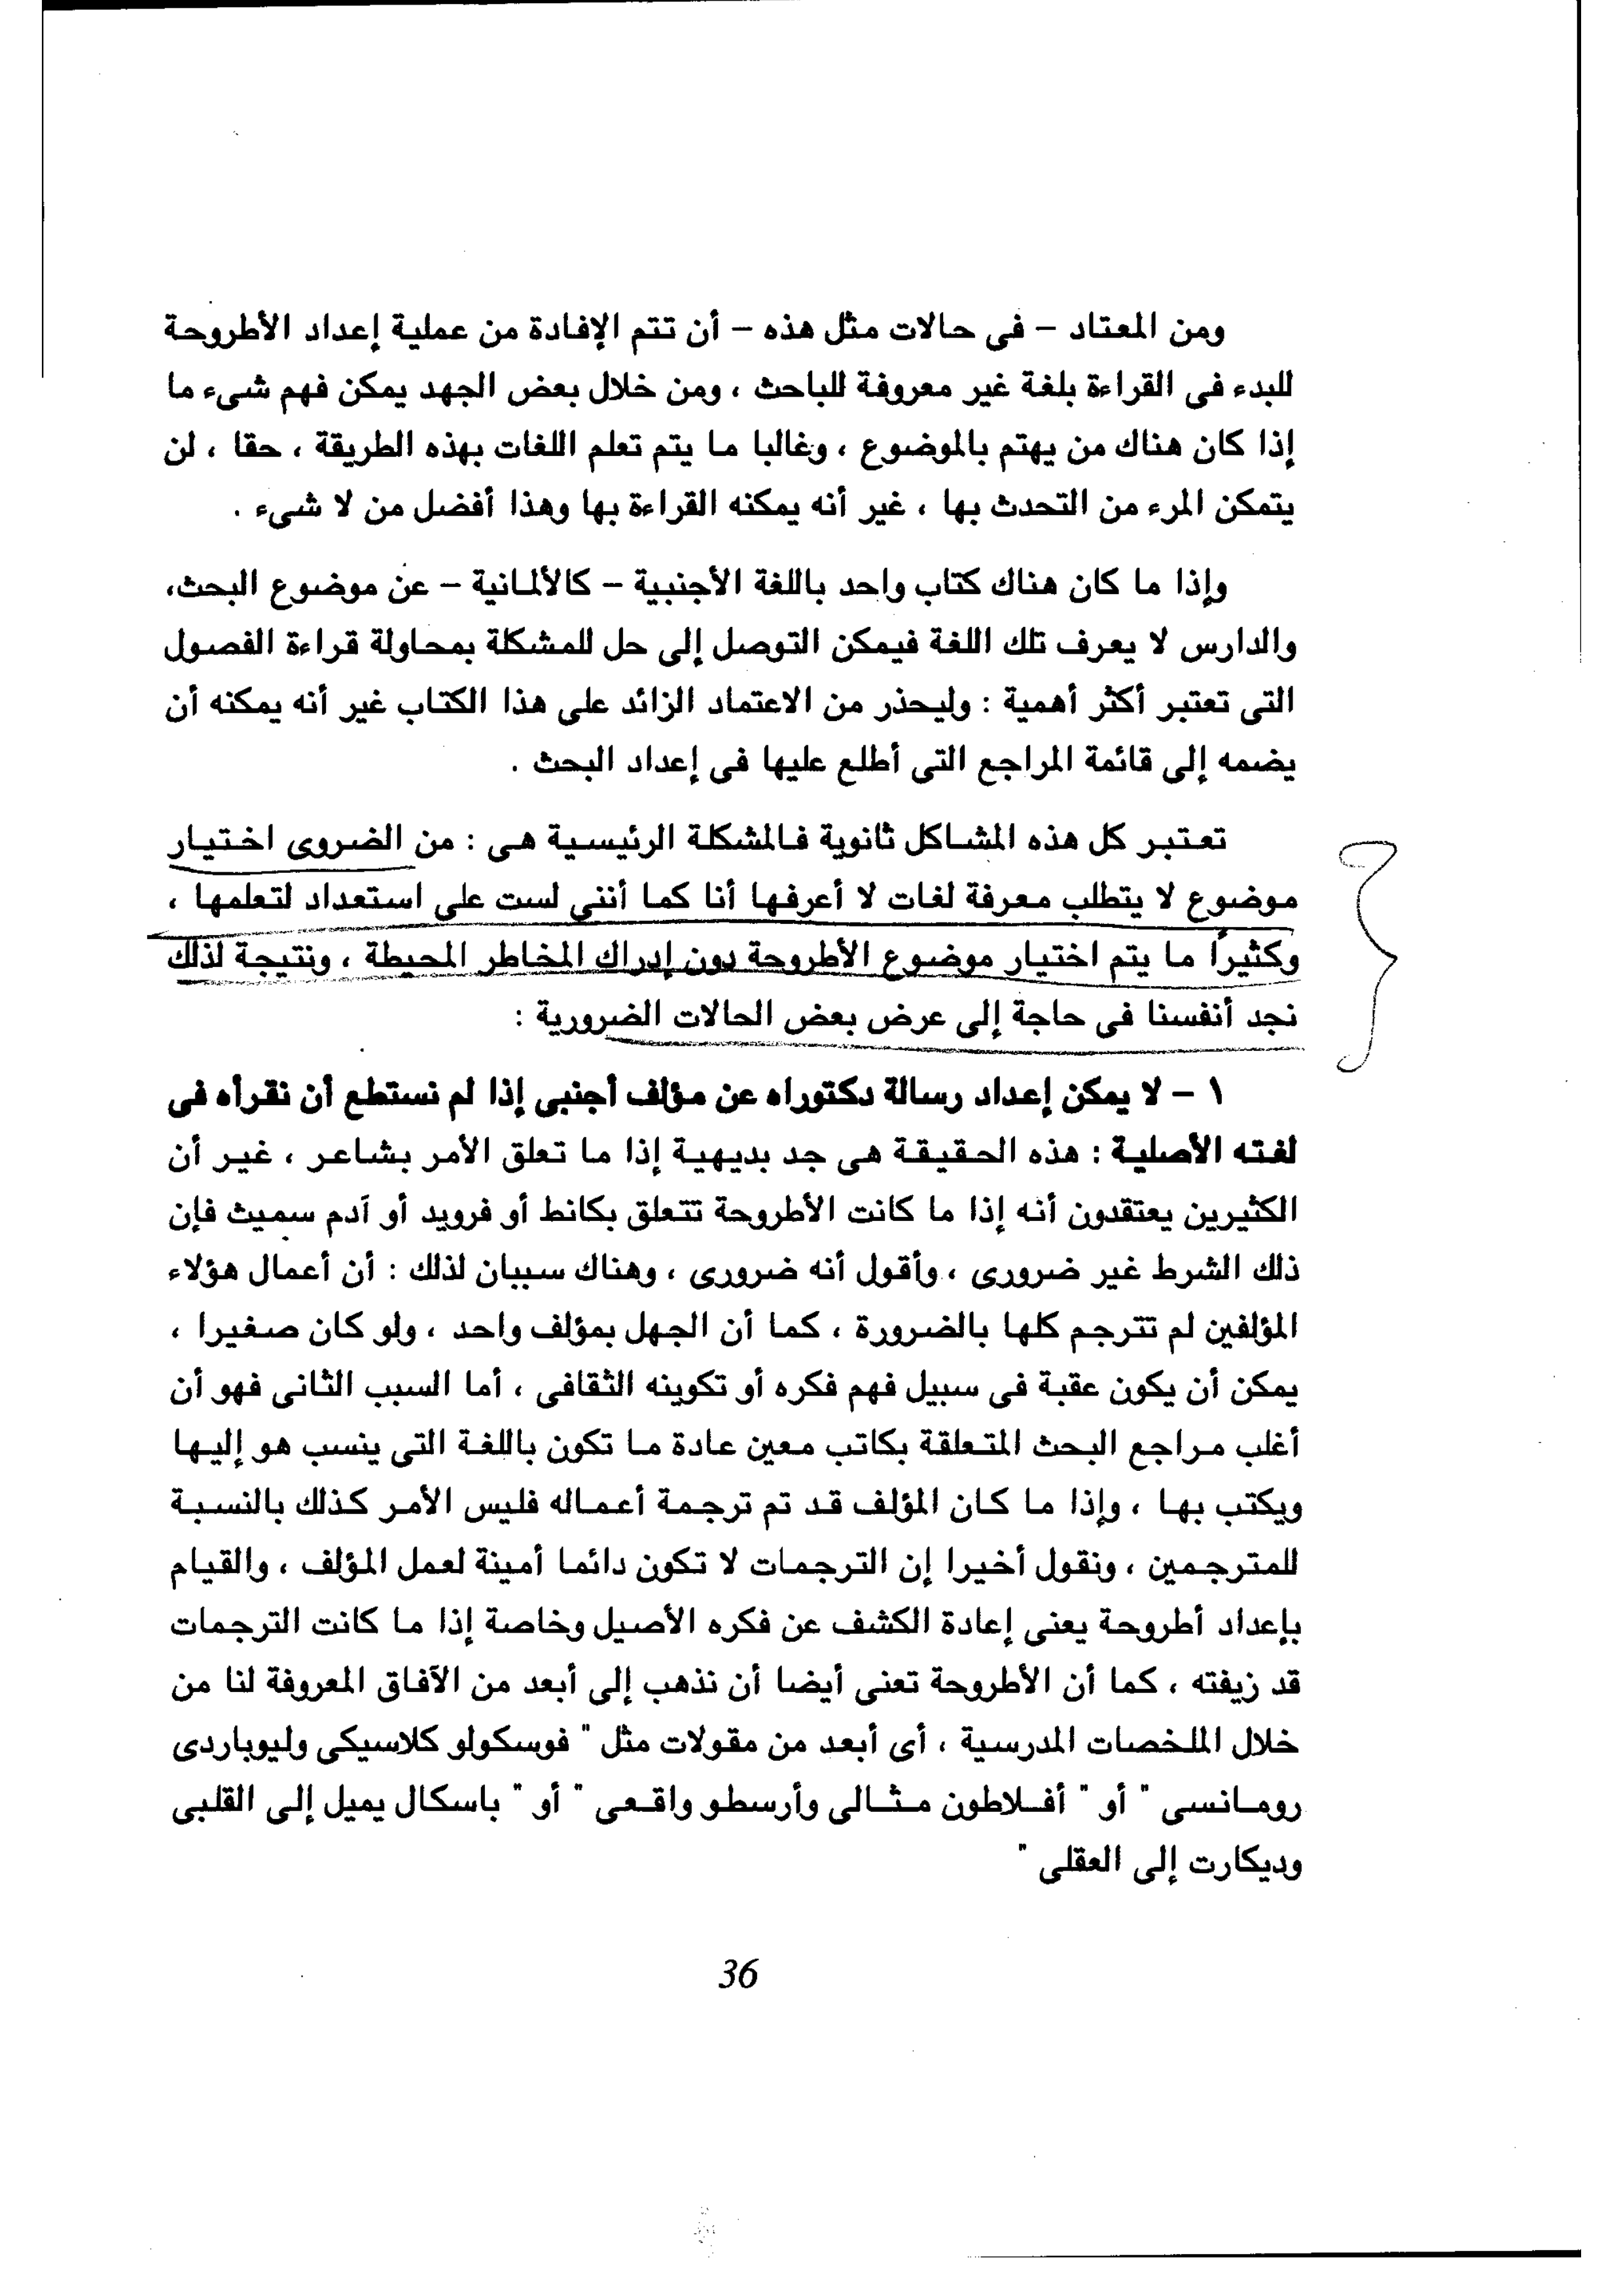 ومن المعتاد – فى حالات مثل هذه – أن تتم الإفادة من عملية إعداد الأطروحة
للبدء فى القراءة بلغة غير معروفة للباحث ، ومن خلال بعض الجهد يمكن فهم شىء ما
إذا كان هناك من يهتم بالموضوع ، وغالبا ما يتم تعلم اللغات بهذه الطريقة ، حقا ، لن
يتمكن المرء من التحدث بها ، غير أنه يمكنه القراءة بها وهذا أفضل من لا شىء .
وإذا ما كان هناك كتاب واحد باللغة الأجنبية – كالألمانية – عن موضوع البحث،
والدارس لا يعرف تلك اللغة فيمكن التوصل إلى حل للمشكلة بمحاولة قراءة الفصول
التى تعتبر أكثر أهمية : وليحذر من الاعتماد الزائد على هذا الكتاب غير أنه يمكنه أن
يضمه إلى قائمة المراجع التى أطلع عليها فى إعداد البحث .
تعتبر كل هذه المشاكل ثانوية فالمشكلة الرئيسية هى : من الضروى اختيار
موضوع لا يتطلب معرفة لغات لا أعرفها أنا كما أننى لست على استعداد لتعلمها ،
وكثيرًا ما يتم اختيار موضوع الأطروحة دون إدراك المخاطر المحيطة ، ونتيجة لذلك
نجد أنفسنا فى حاجة إلى عرض بعض الحالات الضرورية :
١ – لا يمكن إعداد رسالة دكتوراه عن مؤلف أجنبى إذا لم نستطع أن نقرأه فى
لغته الأصلية : هذه الحقيقة هى جد بديهية إذا ما تعلق الأمر بشاعر ، غير أن
الكثيرين يعتقدون أنه إذا ما كانت الأطروحة تتعلق بكانط أو فرويد أو آدم سميث فإن
ذلك الشرط غير ضرورى ، وأقول أنه ضرورى ، وهناك سببان لذلك : أن أعمال هؤلاء
المؤلفين لم تترجم كلها بالضرورة ، كما أن الجهل بمؤلف واحد ، ولو كان صغيرا ،
يمكن أن يكون عقبة فى سبيل فهم فكره أو تكوينه الثقافى ، أما السبب الثانى فهو أن
أغلب مراجع البحث المتعلقة بكاتب معين عادة ما تكون باللغة التى ينسب هو إليها
ويكتب بها ، وإذا ما كان المؤلف قد تم ترجمة أعماله فليس الأمر كذلك بالنسبة
للمترجمين ، ونقول أخيرا إن الترجمات لا تكون دائما أمينة لعمل المؤلف ، والقيام
بإعداد أطروحة يعنى إعادة الكشف عن فكره الأصيل وخاصة إذا ما كانت الترجمات
قد زيفته ، كما أن الأطروحة تعنى أيضا أن نذهب إلى أبعد من الآفاق المعروفة لنا من
خلال الملخصات المدرسية ، أى أبعد من مقولات مثل " فوسكولو كلاسيكى وليوباردى
رومانسى " أو " أفلاطون مثالى وأرسطو واقعى " أو " باسكال يميل إلى القلبى
وديكارت إلى العقلى "
36